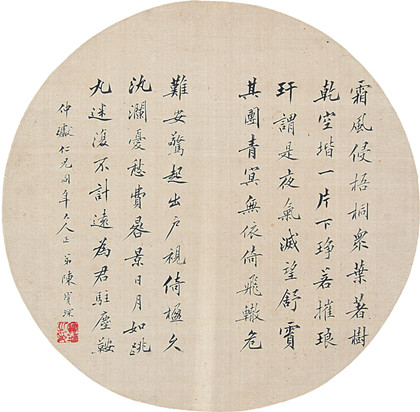 霜風侵梧桐衆葉著樹
乾空堦一片下琤若摧琅
玕謂是夜氣滅望舒霣
其團青冥無依倚飛轍危
難安驚起出戶視倚楹久
汍瀾憂愁費晷景日月如跳
丸迷復不計遠為君駐塵鞍
仲仁兄同年大人正 弟陳寶琛